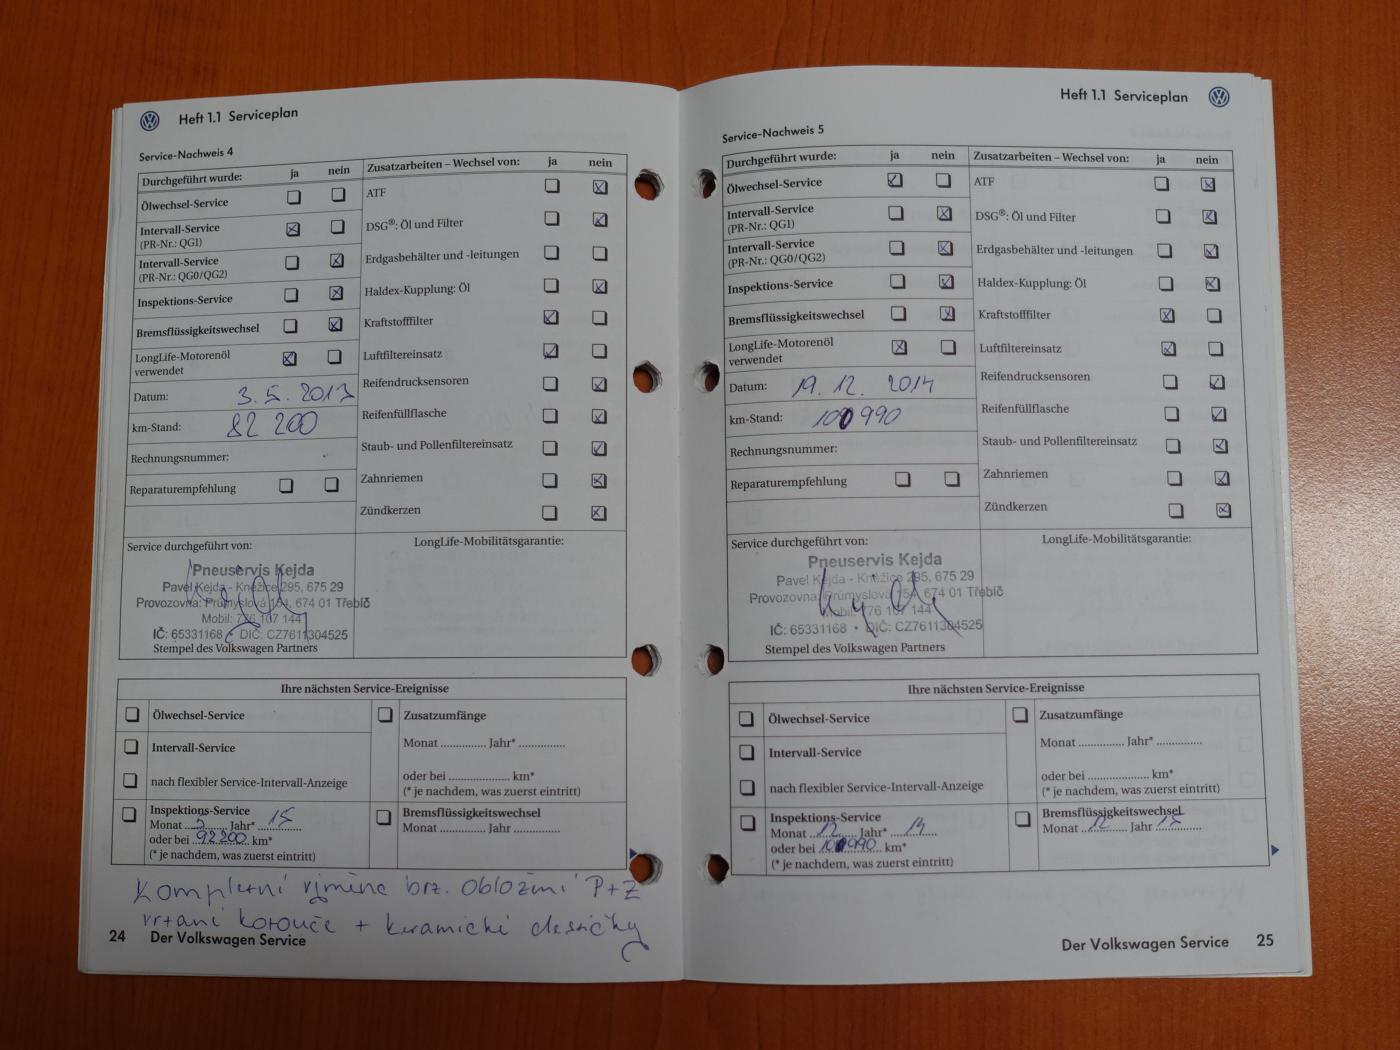 Heft 1.1 Serviceplan
Service-Nachweis 4
Durchgeführt wurde: ja nein
Ölwechsel-Service
Intervall-Service
(PR-Nr.: QG1)
Intervall-Service
(PR-Nr.: QG0/QG2)
Inspektions-Service
Bremsflüssigkeitswechsel
LongLife-Motorenöl
verwendet
Datum: 3. 5. 2013
km-Stand: 82 200
Rechnungsnummer:
Reparaturempfehlung
Zusatzarbeiten – Wechsel von: ja nein
ATF
DSG®: Öl und Filter
Erdgasbehälter und -leitungen
Haldex-Kupplung: Öl
Kraftstofffilter
Luftfiltereinsatz
Reifendrucksensoren
Reifenfüllflasche
Staub- und Pollenfiltereinsatz
Zahnriemen
Zündkerzen
Service durchgeführt von:
Pneuservis Kejda
Pavel Kejda - Kněžice 295, 675 29
Provozovna: Průmyslová 154, 674 01 Třebíč
Mobil: 776 107 144
IČ: 65331168 • DIČ: CZ7611304525
Stempel des Volkswagen Partners
LongLife-Mobilitätsgarantie:
Ihre nächsten Service-Ereignisse
Ölwechsel-Service
Intervall-Service
nach flexibler Service-Intervall-Anzeige
Inspektions-Service
Monat 5 Jahr* 15
oder bei 92200 km*
(* je nachdem, was zuerst eintritt)
Zusatzumfänge
Monat ............... Jahr* ...............
oder bei .................... km*
(* je nachdem, was zuerst eintritt)
Bremsflüssigkeitswechsel
Monat ............. Jahr ...............
Kompletní výměna brz. obložení P+Z
vrtané kotouče + keramické destičky
24 Der Volkswagen Service
Heft 1.1 Serviceplan
Service-Nachweis 5
Durchgeführt wurde: ja nein
Ölwechsel-Service
Intervall-Service
(PR-Nr.: QG1)
Intervall-Service
(PR-Nr.: QG0/QG2)
Inspektions-Service
Bremsflüssigkeitswechsel
LongLife-Motorenöl
verwendet
Datum: 19. 12. 2014
km-Stand: 100990
Rechnungsnummer:
Reparaturempfehlung
Zusatzarbeiten – Wechsel von: ja nein
ATF
DSG®: Öl und Filter
Erdgasbehälter und -leitungen
Haldex-Kupplung: Öl
Kraftstofffilter
Luftfiltereinsatz
Reifendrucksensoren
Reifenfüllflasche
Staub- und Pollenfiltereinsatz
Zahnriemen
Zündkerzen
Service durchgeführt von:
Pneuservis Kejda
Pavel Kejda - Kněžice 295, 675 29
Provozovna: Průmyslová 154, 674 01 Třebíč
Mobil: 776 107 144
IČ: 65331168 • DIČ: CZ7611304525
Stempel des Volkswagen Partners
LongLife-Mobilitätsgarantie:
Ihre nächsten Service-Ereignisse
Ölwechsel-Service
Intervall-Service
nach flexibler Service-Intervall-Anzeige
Inspektions-Service
Monat 12 Jahr* 14
oder bei 100990 km*
(* je nachdem, was zuerst eintritt)
Zusatzumfänge
Monat .............. Jahr* ...............
oder bei .................... km*
(* je nachdem, was zuerst eintritt)
Bremsflüssigkeitswechsel
Monat 12 Jahr 15
Der Volkswagen Service 25